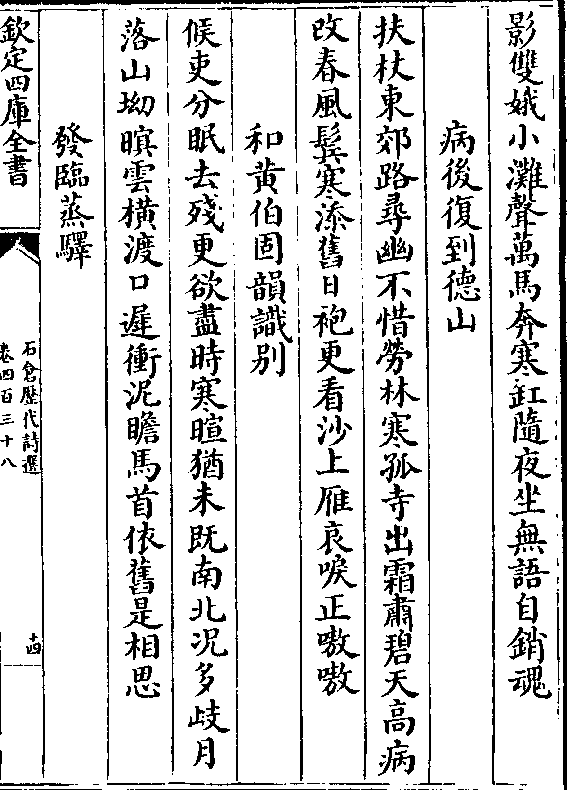 影雙娥小灘聲萬馬奔寒缸隨夜坐無語自銷魂
病後復到德山
扶杖東郊路尋幽不惜勞林寒孤寺出霜肅碧天高病
改春風鬂寒添舊日袍更看沙上雁哀唳正嗷嗷
和黄伯固韻識别
候吏分眠去殘更欲盡時寒暄猶未既南北况多歧月
落山坳暝雲横渡口遲衝泥瞻馬首依舊是相思
發臨蒸驛
欽定四庫全書
石倉歷代詩選
卷四百三十八
十四